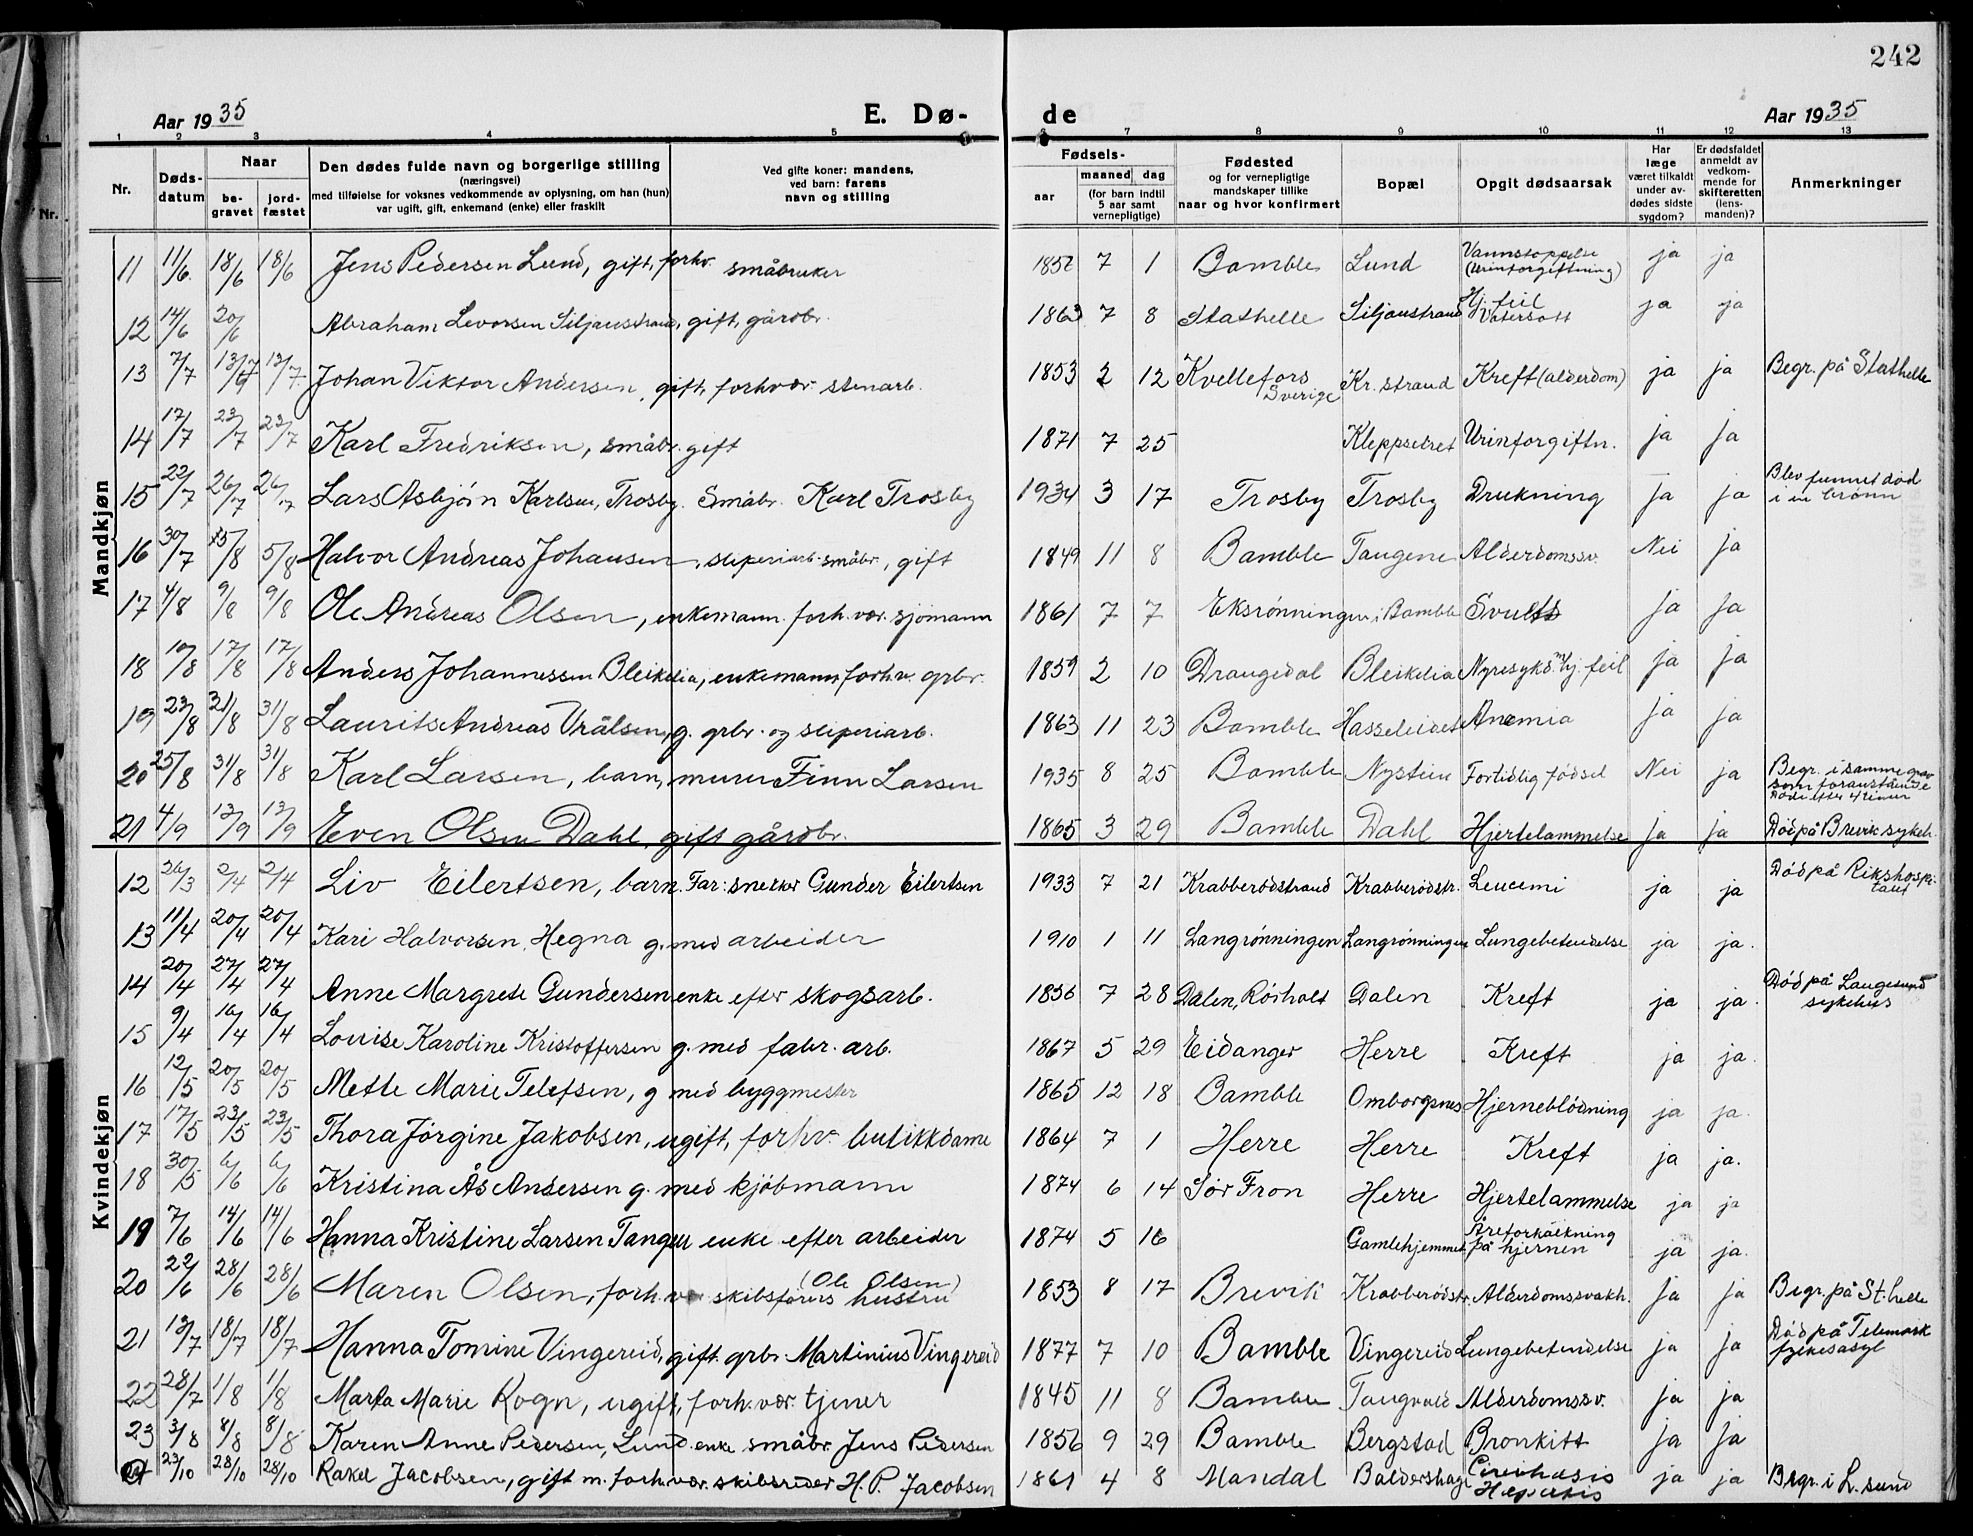 242
Aar 1935 E. Dø- de Aar 1935
1 2 3 4 5 6 7 8 9 10 11 12 13
Nr. Døds-datum Naar be-gravet jord-fæstet Den dødes fulde navn og borgerlige stilling (næringsvei) med tilføielse for voksnes vedkommende av oplysning, om han (hun) var ugift, gift, enkemand (enke) eller fraskilt Ved gifte koner: mandens, ved barn: farens navn og stilling Fødsels- aar maaned dag (for barn indtil 5 aar samt vernepligtige) Fødested og for vernepligtige mandskaper tillike naar og hvor konfirmert Bopæl Opgit dødsaarsak Har læge været tilkaldt under av-dødes sidste sygdom? Er dødsfaldet anmeldt av vedkom-mende for skifteretten (lens-manden)? Anmerkninger
Mandkjøn
11 11/6 18/6 18/6 Jens Pedersen Lund, gift, forhv. småbruker 185 7 1 Bamble Lund Vannstoppelse (Urinforgiftning) ja ja
12 14/6 20/6 Abraham Levorsen Siljanstrand, gift, gårdbr. 1863 7 8 Stathelle Siljanstrand Hj. feil Vatersott ja ja
13 7/7 13/7 13/7 Johan Viktor Andersen, gift, forhvær. stenarb. 1853 2 12 Kvellefors Sverige Kr. strand Kreft (alderdom) ja ja Begr. på Stathelle
14 17/7 23/7 23/7 Karl Fredriksen, småbr. gift 1871 7 25 Kleppsetret Urinforgiftn. ja ja
15 22/7 26/7 26/7 Lars Asbjørn Karlsen, Trosby. Småbr. Karl Trosby 1934 3 17 Trosby Trosby Drukning ja ja Blev funnet død i en brønn
16 30/7 5/8 5/8 Halvor Andreas Johansen, sliperiarb. småbr., gift 1849 11 8 Bamble Tangene Alderdomssv. Nei ja
17 4/8 9/8 9/8 Ole Andreas Olsen, enkemann. forh. vær. sjømann 1861 7 7 Eksrønningen i Bamble Svulst ja ja
18 10/8 17/8 17/8 Anders Johannessen Bleikelia, enkemann, forhv. grbr. 1859 2 10 Drangedal Bleikelia Nyresykd. Hj. feil ja ja
19 23/8 31/8 31/8 Laurits Andreas Vrålsen, g. grbr. og sliperiarb. 1863 11 23 Bamble Hasseleidet Anemia ja ja
20 25/8 31/8 31/8 Karl Larsen, barn, murer Finn Larsen 1935 8 25 Bamble Nystein Fortidlig fødsel Nei ja Begr. i samme grav som foranstående Døde efter 4 timer
21 4/9 13/9 13/9 Even Olsen Dahl, gift gårdbr. 1865 3 29 Bamble Dahl Hjertelammelse ja ja Død på Brevik sykeh.
Kvindekjøn
12 26/3 2/4 2/4 Liv Eilertsen, barn. Far: snekker Gunder Eilertsen 1933 7 21 Krabberødstrand Krabberødstr. Leucemi ja ja Død på Rikshospitalet
13 11/4 20/4 20/4 Kari Halvorsen, Hegna g. med arbeider 1910 1 11 Langrønningen Langrønningen Lungebetendelse ja ja.
14 20/4 27/4 27/4 Anne Margrete Gundersen enke efter skogsarb. 1856 7 28 Dalen, Rørholt Dalen Kreft ja ja. Død på Langesund sykehus
15 9/4 16/4 16/4 Louise Karoline Kristoffersen g. med fabr. arb. 1867 5 29 Eidanger Herre Kreft ja ja.
16 12/5 20/5 20/5 Mette Marie Telefsen, g med byggmester 1865 12 18 Bamble Omborgsnes Hjerneblødning ja ja.
17 17/5 23/5 23/5 Thora Jørgine Jakobsen, ugift, forhv. butikkdame 1864 7 1 Herre Herre Kreft ja ja.
18 30/5 6/6 6/6 Kristina Ås Andersen g. med kjøbmann 1874 6 14 Sør Fron Herre Hjertelammelse ja ja
19 7/6 14/6 14/6 Hanna Kristine Larsen Tangen enke efter arbeider 1874 5 16 Gamlehjemmet Åreforkalkning på hjernen ja ja.
20 22/6 28/6 28/6 Maren Olsen, forh. vær skibsførers hustru (Ole Olsen) 1853 8 17 Brevik Krabberødstr. Alderdomssvakh. ja ja Begr. på St.helle
21 12/7 18/7 18/7 Hanna Tomine Vingereid, gift. grbr. Martinius Vingereid 1877 7 10 Bamble Vingereid Lungebetendelse ja ja Død på Telemark sykeasyl
22 28/7 1/8 1/8 Marta Marie Rogn, ugift, forh. vær. tjener 1845 11 8 Bamble Tangvald Alderdomssv. ja ja
23 3/8 8/8 8/8 Karen Anne Pedersen, Lund. enke småbr. Jens Pedersen 1856 9 29 Bamble Bergstad Bronkitt ja ja
23/10 28/10 28/10 Rakel Jacobsen, gift m. forh. vær. skibsreder H. P. Jacobsen 1861 4 8 Mandal Baldershage ja ja Begr. i L. sund